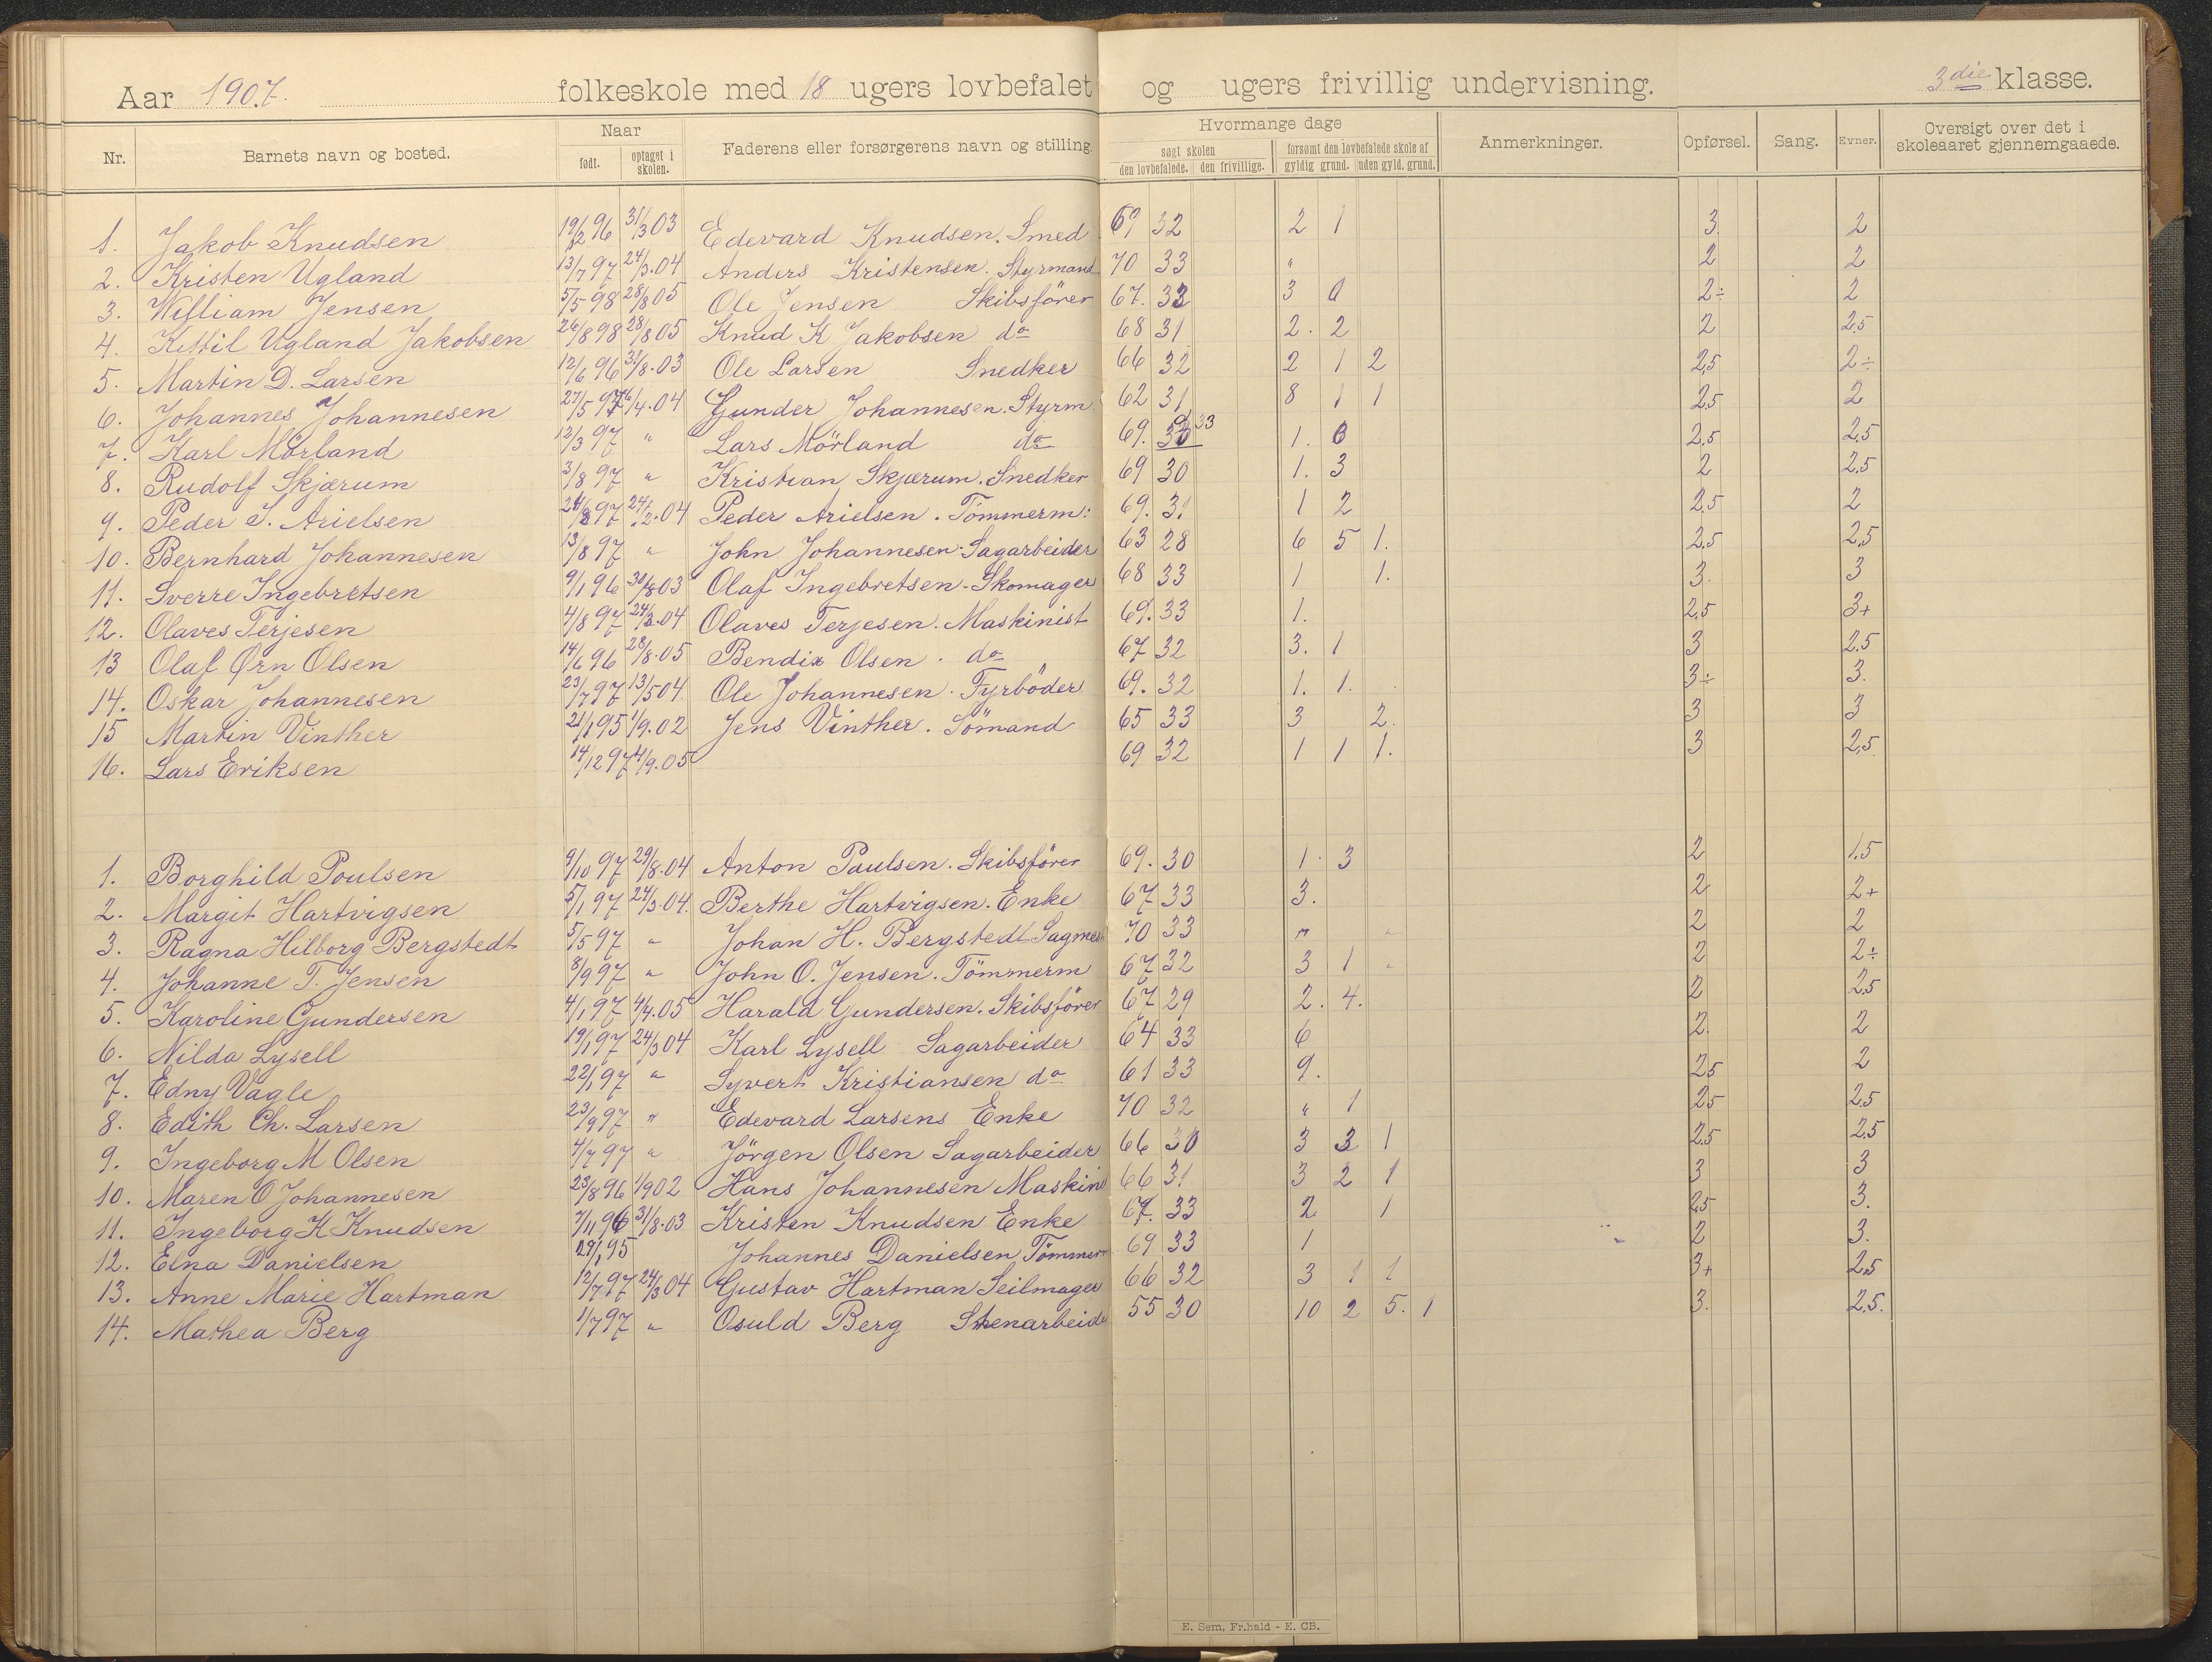 Aar 1907. folkeskole med 18 ugers lovbefalet og ugers frivillig undervisning. 3die klasse.
Nr. Barnets navn og bosted. Naar født. optaget i skolen. Faderens eller forsørgerens navn og stilling. Hvormange dage søgt skolen den lovbefalede. den frivillige. forsømt den lovbefalede skole af gyldig grund. uden gyld. grund. Anmerkninger. Opførsel. Sang. Evner. Oversigt over det i skoleaaret gjennemgaaede.
1. Jakob Knudsen 19/2 96 31/3 03 Edevard Knudsen. Smed 69 32 2 1 3 2
2. Kristen Ugland 13/7 97 24/3.04 Anders Kristensen. Styrmand 70 33 " 2 2
3. William Jensen 5/5 98 28/8 05 Ole Jensen Skibsförer 67. 33 3 0 2÷ 2
4. Kittil Ugland Jakobsen 26/8 98 28/8 05 Knud K Jakobsen do 68 31 2. 2 2 2,5
5. Martin D. Larsen 12/6 96 31/8.03 Ole Larsen Snedker 66 32 2 1 2 2,5 2÷
6. Johannes Johannesen 27/5 97 /4.04 Gunder Johannesen. Styrm 62 31 8 1 1 2,5 2
7. Karl Mörland 12/3 97 " Lars Mörland do 69. 33 1. 0 2,5 2,5
8. Rudolf Skjærum 3/8 97 " Kristian Skjærum. Snedker 69 30 1. 3 2 2,5
9. Peder S. Arielsen 97 24/2.04 Peder Arielsen. Tömmerm: 69. 31 1 2 2,5 2
10. Bernhard Johannesen 13/8 97 " John Johannesen. Sagarbeider 63 28 6 5 1. 2,5 2,5
11. Sverre Ingebretsen 9/1 96 30/8 03 Olaf Ingebretsen. Skomager 68 33 1 1. 3. 3
12. Olaves Terjesen 4/8 97 24/3.04 Olaves Terjesen. Maskinist 69. 33 1. 2,5 3+
13 Olaf Ørn Olsen 14/6 96 28/8.05 Bendix Olsen. do 67 32 3. 1 3 2.5
14. Oskar Johannesen 23/7 97 13/5 04. Ole Johannesen. Fyrböder 69. 32 1. 1. 3÷ 3.
15 Martin Vinther 21/1 95 1/9.02 Jens Vinther. Sömand 65 33 3 2. 3 3
16. Lars Eriksen 14/12 97 4/9.05 69 32 1 1 1. 3 2,5
1. Borghild Poulsen 9/10 97 29/8.04 Anton Paulsen. Skibsförer 69. 30 1. 3 2 1.5
2. Margit Hartvigsen 5/1 97 24/3.04. Berthe Hartvigsen. Enke 67 33 3. 2 2+
3. Ragna Hilborg Bergstedt 5/5 97 " Johan H. Bergstedt Sagmest 70 33 " " 2 2
4. Johanne T. Jensen 8/9 97 " John O. Jensen. Tömmerm 67 32 3 1 " 2 2÷
5. Karoline Gundersen 4/1 97 4/4.05 Harald Gundersen. Skibsförer 67 29 2. 4. 2 2.5
6. Nilda Lysell 19/1 97 24/3 04 Karl Lysell Sagarbeider 64 33 6 2 2
7. Edny Vagle 22/1 97 " Syvert Kristiansen do 61 33 9. 2,5 2
8. Edith Ch. Larsen 23/9 97 " Edevard Larsens Enke 70 32 " 1 2,5 2,5
9. Ingeborg M Olsen 4/7 97 " Jörgen Olsen Sagarbeider 66 30 3 3 1 2,5 2,5
10. Maren O Johannesen 23/8 96 1/9 02 Hans Johannesen Maskini 66 31 3 2 1 3 3
11. Ingeborg K Knudsen 7/11 96 31/8.03 Kristen Knudsen Enke 67. 33 2 1 2,5 3.
12. Elna Danielsen 29/1 95 Johannes Danielsen Tömmerm 69 33 1 2 3.
13. Anne Marie Hartman 12/7 97 24/3 04 Gustav Hartman Seilmager 66 32 3 1 1 3+ 2,5
14. Mathea Berg 1/7 97 " Osuld Berg Stenarbeide 55 30 10 2 5. 1 3. 2,5.
E. Sem, Fr.hald - E. CB.